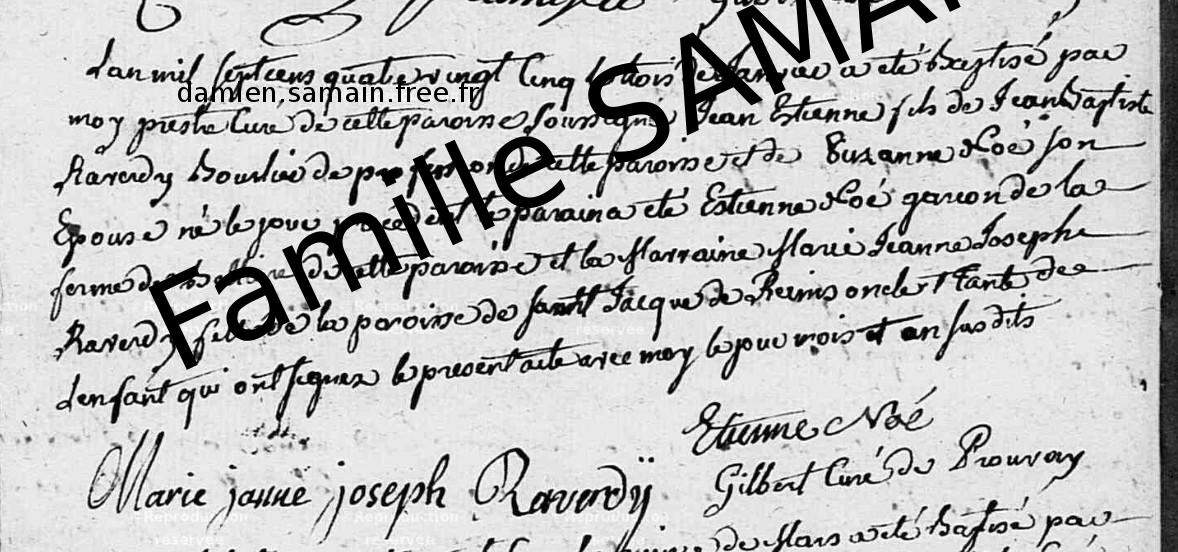 Lan mil septcens quatrevingt Cinq le trois de Janvier a eté Baptisé par
damien.samain.free.fr
moy prestre Curé de cette paroisse soussigné Jean Estienne fils de Jean Baptiste
Raverdy Bourlier de profession de cette paroisse et de Suzanne Noé son
Epouse né le jour precedent le parain a eté Estienne Noé garcon de la
ferme de de cette paroisse et la Marraine Marie Jeanne Josephe
Raverdy fille de la paroisse de saint Jacque de Reims oncle et Tante de
Lenfant qui ont signez le present acte avec moy le jour mois et an susdits
Famille SAMA
Etienne Noé
Marie janne joseph Raverdÿ
Gilbert Curé de Prouvay
de Mars a eté Baptisé par